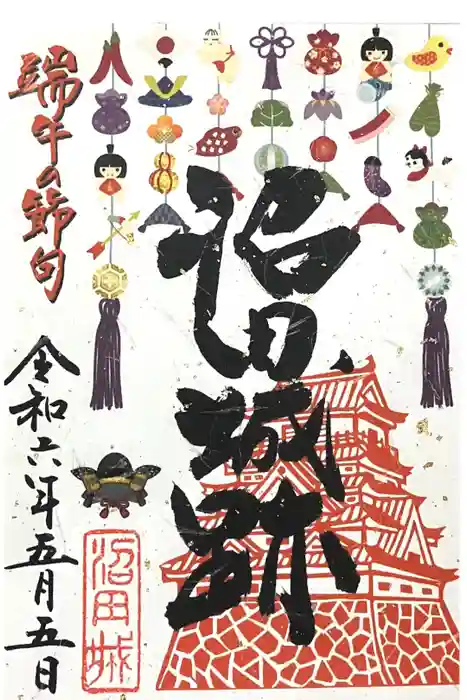 沼田城跡
端午の節句
令和六年五月五日
沼田城